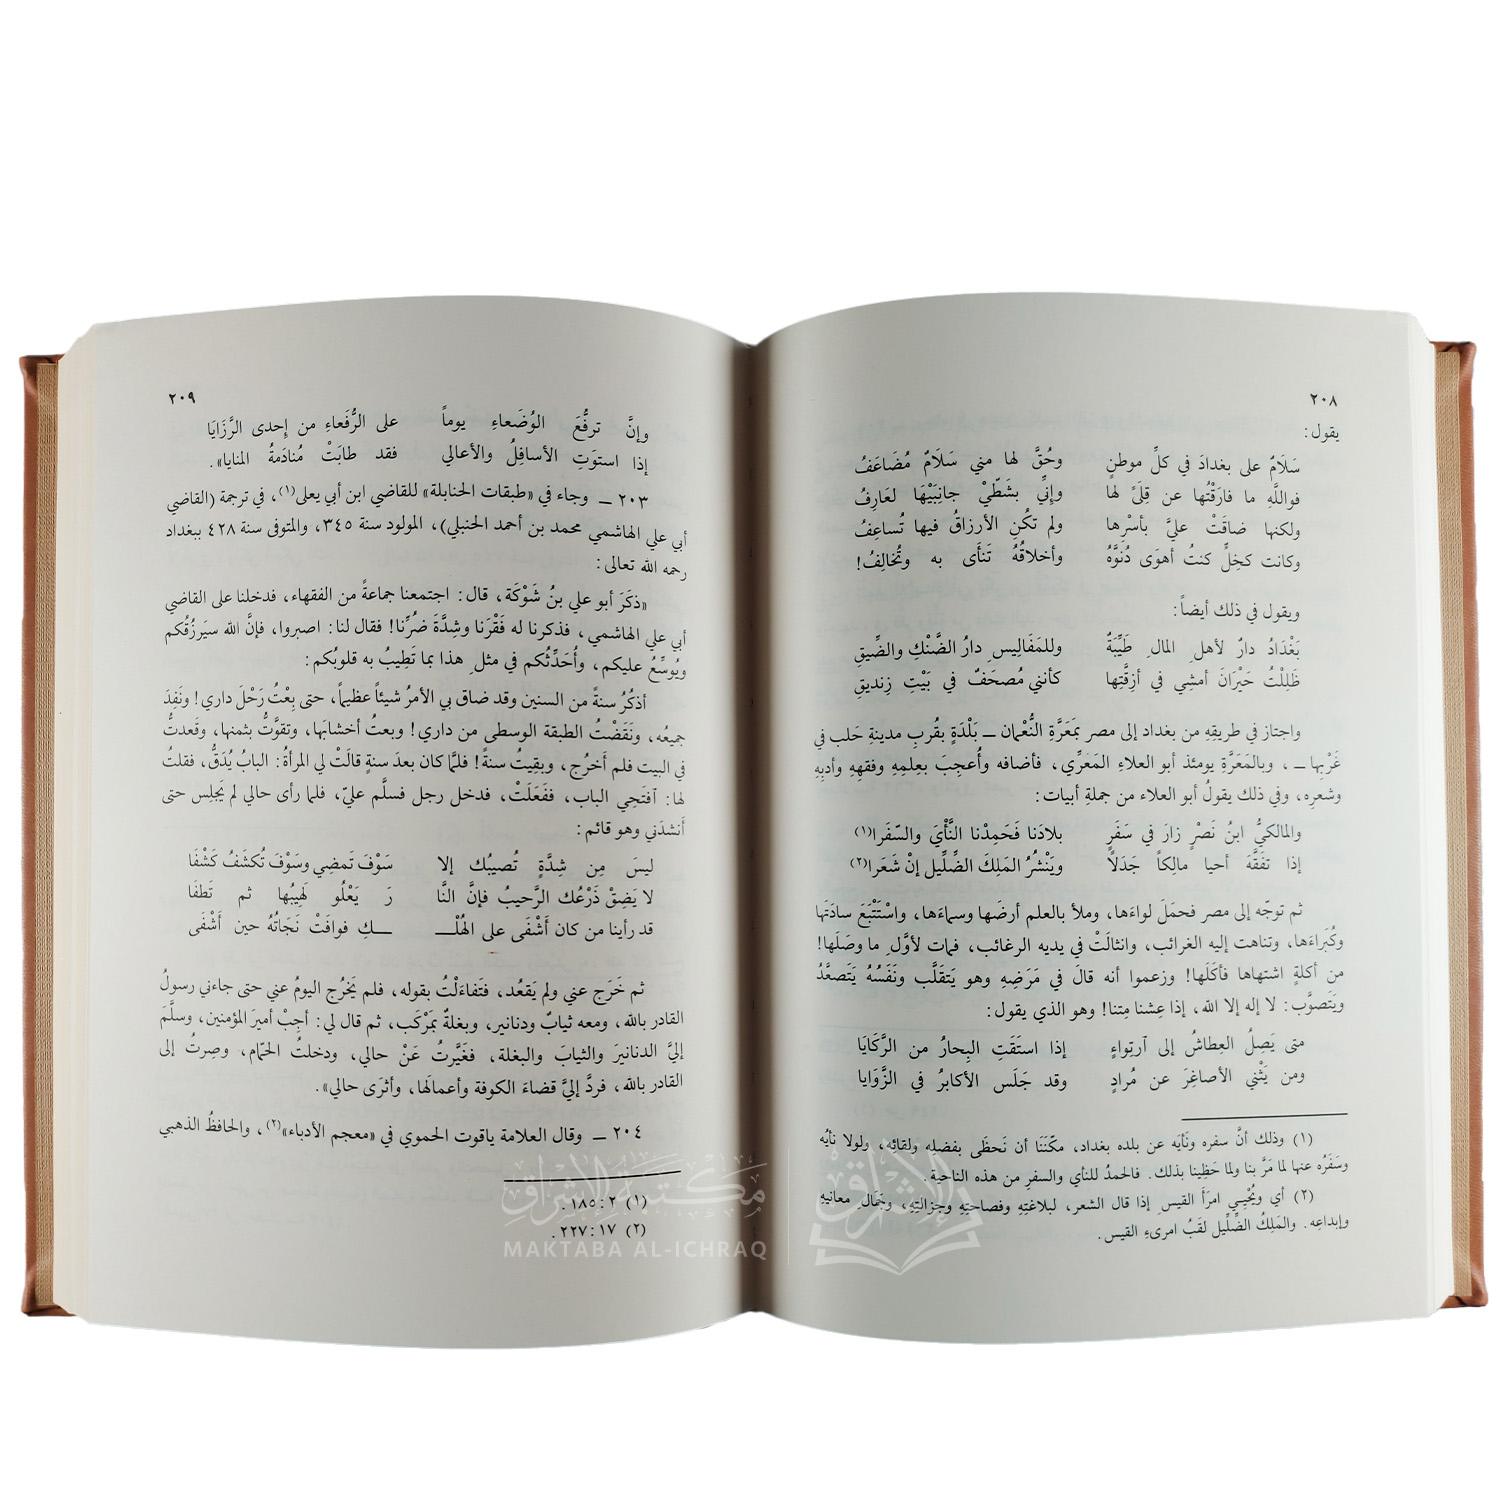 ٢٠٨
يقول:
سَلَامٌ على بغدادَ في كلِّ موطنٍ وحُقَّ لها مني سَلَامٌ مُضَاعَفُ
فواللَّهِ ما فارَقْتُها عن قِلَىً لها وإنِّي بشَطَّيْ جانِبَيْهَا لعَارِفُ
ولكنها ضاقَتْ عليَّ بأسْرِها ولم تكُنِ الأرزاقُ فيها تُساعِفُ
وكانت كخِلٍّ كنتُ أهوَى دُنوَّهُ وأخلاقُهُ تَنأَى به وتُخالِفُ!
ويقول في ذلك أيضاً:
بَغْدَادُ دارٌ لأهلِ المالِ طَيِّبَةٌ وللمَفَالِيسِ دارُ الضَّنْكِ والضِّيقِ
ظَلِلْتُ حَيْرَانَ أمشِي في أزِقَّتِها كأنني مُصحَفٌ في بَيْتِ زِنديقِ
واجتاز في طريقِهِ من بغداد إلى مصر بمَعَرَّةِ النُّعْمان ــ بَلْدَةٍ بقُربِ مدينةِ حَلب في
غَرْبِها ــ، وبالمَعَرَّةِ يومئذ أبو العلاءِ المَعَرِّي، فأضافه وأُعجِبَ بعِلمِهِ وفقهِهِ وأدبِهِ
وشعرِه، وفي ذلك يقولُ أبو العلاء من جملةِ أبيات:
والمالكيُّ ابنُ نَصْرٍ زارَ في سَفَرٍ بلادَنا فَحَمِدْنا النَّأْيَ والسَّفَرا(١)
إذا تفَقَّهَ أحيا مالِكاً جَدَلاً ويَنْشُرُ المَلِكَ الضِّلِّيل إنْ شَعَرا(٢)
ثم توجّه إلى مصر فحمَلَ لواءَها، وملأ بالعلم أرضَها وسماءَها، واسْتَتْبَعَ سادَتَها
وكُبَراءَها، وتناهت إليه الغرائب، وانثالَتْ في يديه الرغائب، فمات لأوَّلِ ما وصَلَها!
من أكلةٍ اشتهاها فأكَلَها! وزعموا أنه قالَ في مَرَضِهِ وهو يَتقَلَّب ونَفَسُهُ يَتَصعَّدُ
ويَتَصوَّب: لا إله إلا الله، إذا عِشنا مِتنا! وهو الذي يقول:
متى يَصِلُ العِطاشُ إلى آرتِواءٍ إذا استَقَتِ البِحارُ من الرَّكَايَا
ومن يَثْني الأصاغِرَ عن مُرادٍ وقد جَلَس الأكابرُ في الزَّوَايا
(١) وذلك أنَّ سفره ونَأيَه عن بلده بغداد، مكَّنَنَا أن نَحظَى بفضلِهِ ولقائه، ولولا نأيُه
وسَفَرُه عنها لما مَرَّ بنا ولما حَظِينا بذلك. فالحمدُ للنأي والسفرِ من هذه الناحية.
(٢) أي ويُحْيِي امرَأ القيسِ إذا قال الشعر، لبلاغَتِهِ وفصاحتِهِ وجزالتِهِ، وجَمالِ معانيهِ
وإبداعِه. والمَلِكُ الضِّلِّيل لقَبُ امرىءِ القيس.
٢٠٩
وإنَّ ترفُّعَ الوُضَعاءِ يوماً على الرُّفَعاءِ من إحدى الرَّزَايَا
إذا استوَتِ الأسافِلُ والأعالي فقد طابَتْ مُنادَمةُ المنايا».
٢٠٣ ــ وجاء في «طبقات الحنابلة» للقاضي ابن أبي يعلى(١)، في ترجمة (القاضي
أبي علي الهاشمي محمد بن أحمد الحنبلي)، المولود سنة ٣٤٥، والمتوفى سنة ٤٢٨ ببغداد
رحمه الله تعالى:
«ذكَرَ أبو علي بنُ شَوْكَة، قال: اجتمعنا جماعةً من الفقهاء، فدخلنا على القاضي
أبي علي الهاشمي، فذكرنا له فَقْرَنا وشِدَّةَ ضُرِّنا! فقال لنا: اصبروا، فإنَّ الله سيَرزُقُكم
ويُوسِّعُ عليكم، وأُحَدِّثُكم في مثلِ هذا بما تَطِيبُ به قلوبُكم:
أذكُرُ سنةً من السنين وقد ضاق بي الأمرُ شيئاً عظيماً، حتى بِعْتُ رَحْلَ داري! ونَفِدَ
جميعُه، ونَقَضْتُ الطبقة الوسطى من داري! وبعتُ أخشابَها، وتقوَّتُّ بثمنِها، وقَعدتُّ
في البيت فلم أَخرُج، وبقِيتُ سنة! فلمَّا كان بعدَ سنةٍ قالَتْ لي المرأةُ: البابُ يُدَقُّ، فقلتُ
لها: آفتَحِي الباب، ففَعَلَتْ، فدخل رجل فسلَّم عليّ، فلما رأى حالي لم يَجلِس حتى
أَنشدَني وهو قائم:
ليسَ مِن شِدَّةٍ تُصيبُك إلا سَوْفَ تَمضِي وسَوْفَ تُكشَفُ كَشْفَا
لا يَضِقْ ذَرْعُك الرَّحيبُ فإنَّ النَّا رَ يَعْلُو لَهِيبُها ثم تَطفَا
قد رأينا من كان أَشْفَى على الهُلْـ ـكِ فوافَتْ نَجَاتُهُ حين أَشْفَى
ثم خَرَج عني ولم يَقعُد، فتَفاءَلْتُ بقوله، فلم يَخرُج اليومُ عني حتى جاءني رسولُ
القادر بالله، ومعه ثيابٌ ودنانير، وبغلةٌ بمَرْكَب، ثم قال لي: أجِبْ أميرَ المؤمنين، وسلَّمَ
إليَّ الدنانيرَ والثيابَ والبغلة، فغَيَّرتُ عَنْ حالي، ودخلتُ الحمّام، وصِرتُ إلى
القادر بالله، فردَّ إليَّ قضاءَ الكوفة وأعمالَها، وأثرَى حالي».
٢٠٤ ــ وقال العلامة ياقوت الحموي في «معجم الأدباء»(٢)، والحافظُ الذهبي
(١) ٢: ١٨٥.
(٢) ١٧: ٢٢٧.
مكتبة الإشراق
MAKTABA AL-ICHRAQ
الإشراق